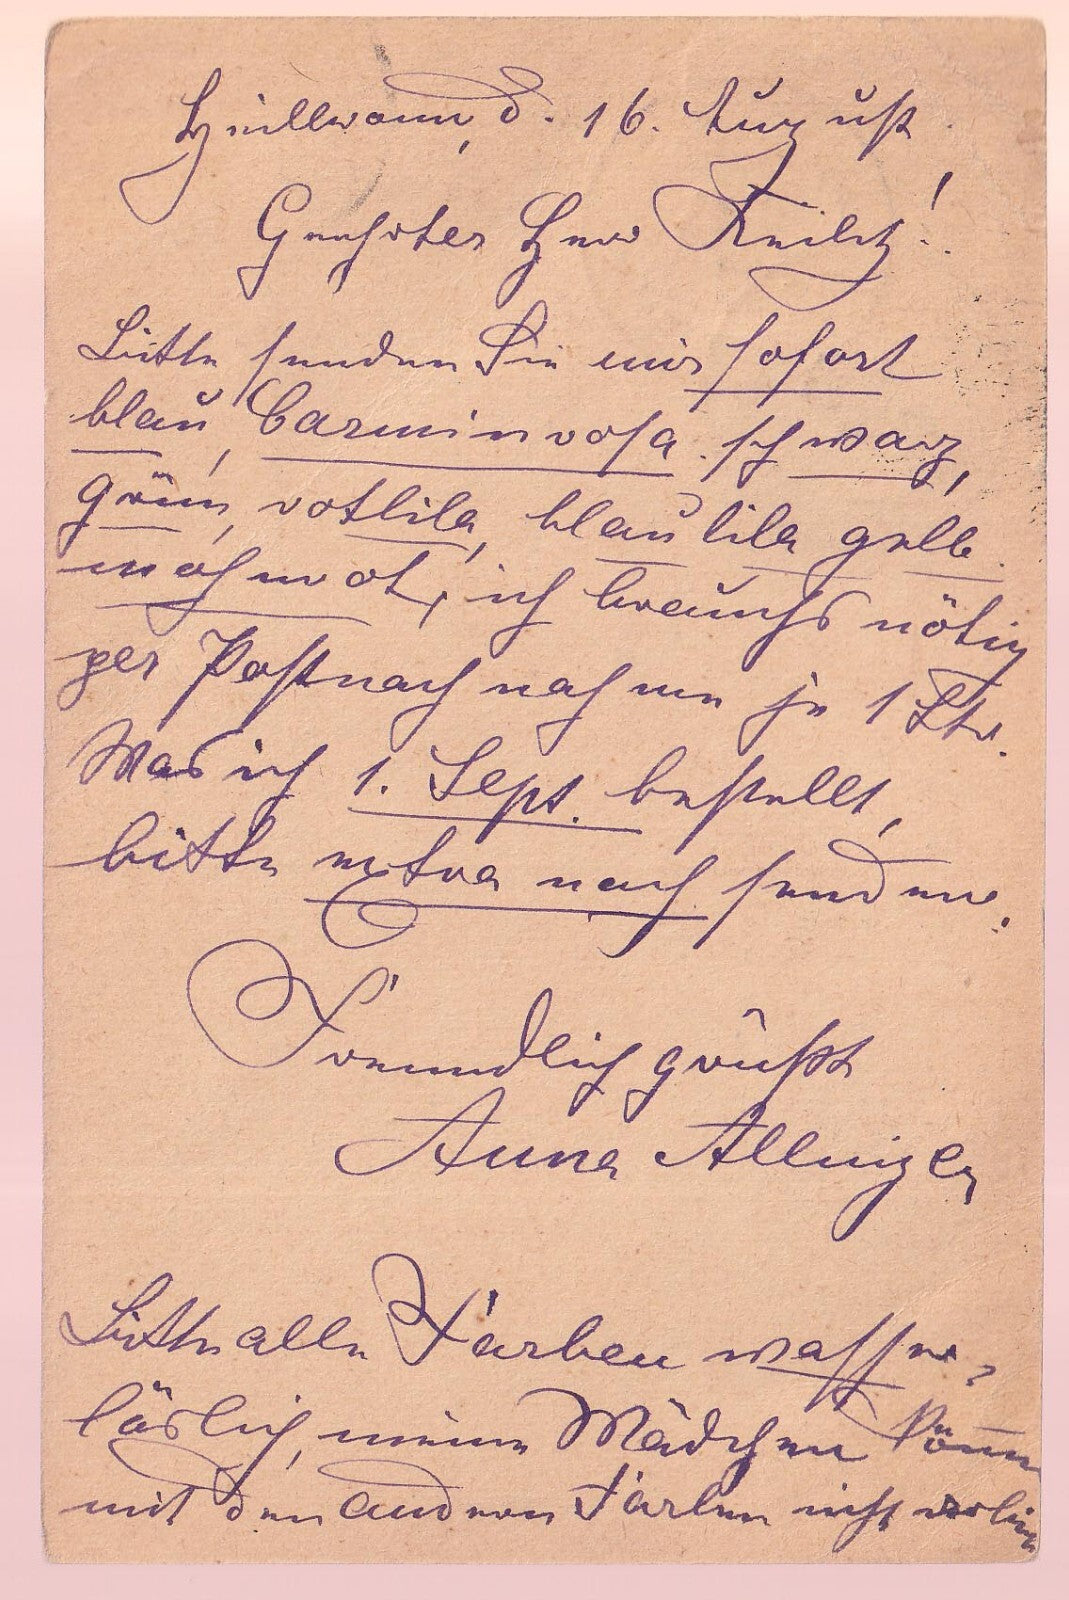 d. 16. August.
Geehrter Herr
Bitte senden Sie mir sofort
blau, Carminrosa. schwarz,
grün, rotlila, blaulila gelb.
mohnrot, ich brauchs nötig
per Postnachnahme je 1 Ltr.
Was ich 1. Sept. bestellt,
bitte extra nach senden.
Freundlich grüßt
Anna
Bitte alle Farben wasser-
löslich, meine Mädchen können
mit den anderen Farben nicht